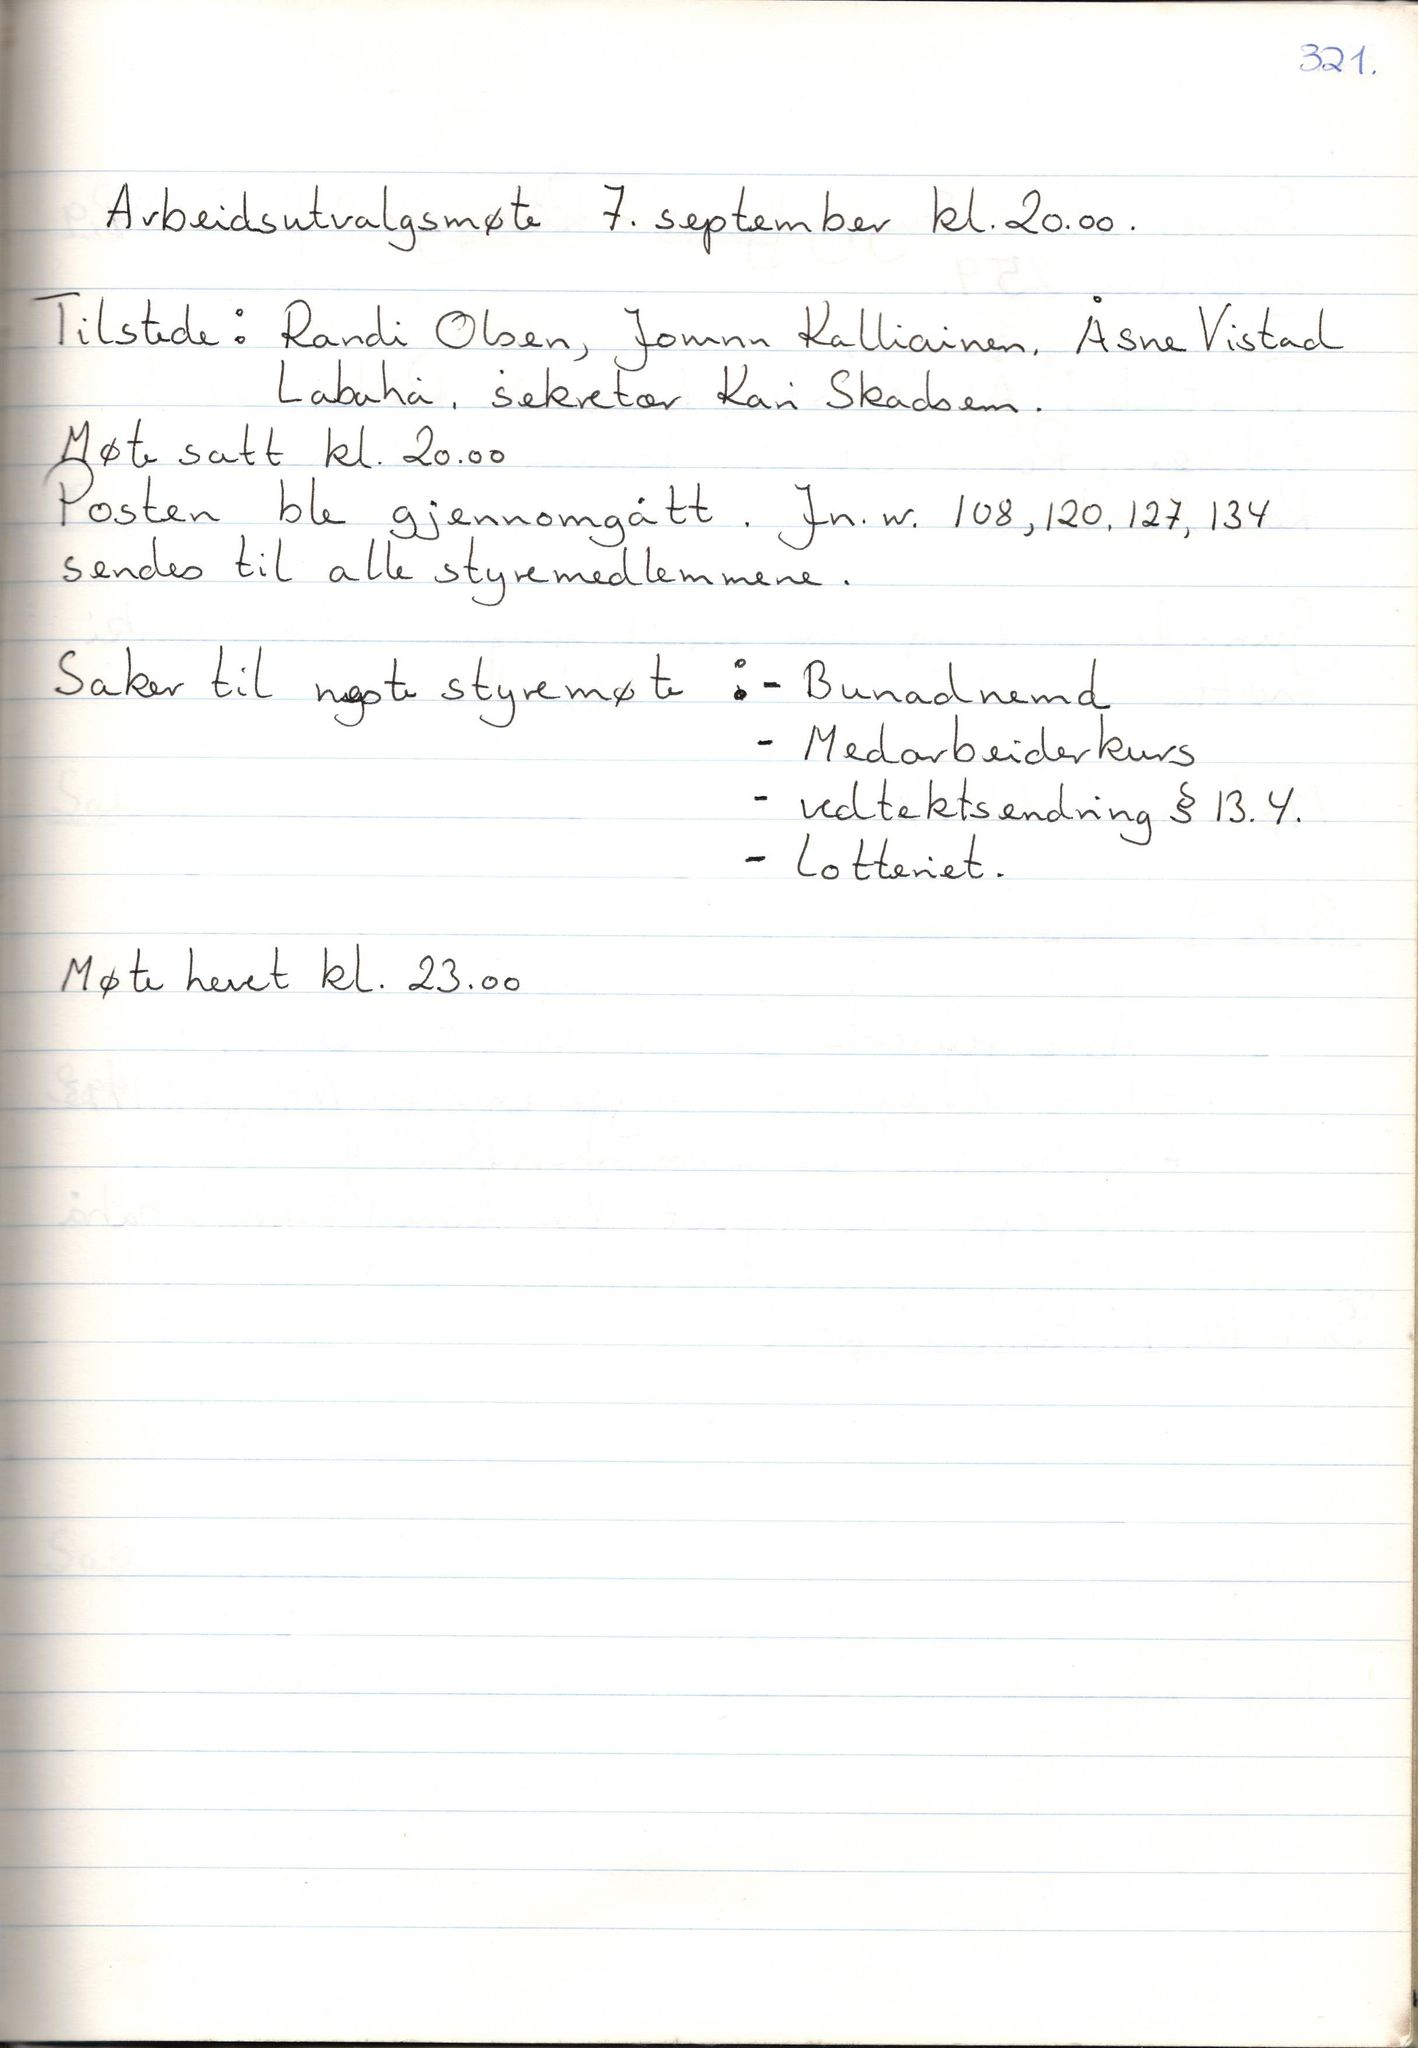 321.
Arbeidsutvalgsmøte 7. september kl. 20.00.
Tilstede: Randi Olsen, Kalliainen, Åsne Vistad
Labahå, sekretær Kari Skadsem.
Møte satt kl. 20.00
Posten ble gjennomgått. Jn. nr. 108, 120, 127, 134
sendes til alle styremedlemmene.
Saker til neste styremøte : - Bunadnemd
- Medarbeiderkurs
- vedtektsendring § 13.4.
- Lotteriet.
Møte hevet kl. 23.00